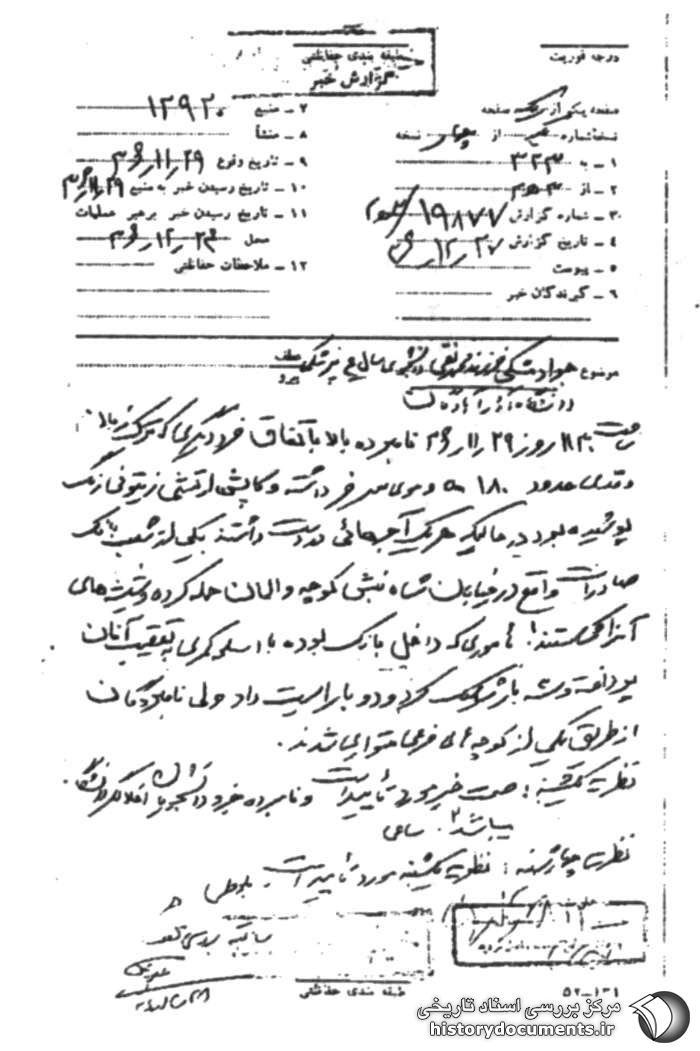 درجه فوریت
طبقه بندی حفاظتی
گزارش خبر
صفحه یکم از یک صفحه
نسخه شماره از چهار نسخه
۱ – به ۳۲۳
۲ – از
۳ – شماره گزارش ۱۹۸۷۷
۴ – تاریخ گزارش ۲۷ر۱۲ر۳۶
۵ – پیوست
۶ – گیرندگان خبر
۷ – منبع ۱۲۹۲۰
۸ – منشأ
۹ – تاریخ وقوع ۲۹ر۱۱ر۳۶
۱۰ – تاریخ رسیدن خبر به منبع ۲۹ر۱۱ر۳۶
۱۱ – تاریخ رسیدن خبر برهبر عملیات
محل ۲۳ر۱۲ر۳۶
۱۲ – ملاحظات حفاظتی
موضوع جواد فرزند محمدتقی دانشجوی سال پزشکی
دانشگاه آذرآبادگان
ساعت روز ۲۹ر۱۱ر۳۶ نامبرده بالا باتفاق فرد دیگری که
وقدی حدود ۱۸۰ و موی سر فر داشته و کاپشن ارتشی زیتونی رنگ
پوشیده بود در حالیکه هر یک آجرهائی در دست داشتند بیکی از شعب بانک
صادرات واقع در خیابان شاه نبش کوچه والمان حمله کرده و شیشه های
آنرا شکستند مأموری که داخل بانک بوده با اسلحه کمری به تعقیب آنان
پرداخته و سه بار شلیک کرد و دو بار ایست داد ولی نامبردگان
از طریق یکی از کوچه های فرعی متواری شدند.
نظریه یکشنبه : صحت خبر مورد تأیید است و نامبرده جزو دانشجویان اخلالگر دانشگاه
میباشد. ساعی
نظریه چهارشنبه : نظریه یکشنبه مورد تأیید است.
طبقه بندی حفاظتی
۵۲–۱۲۱
مرکز بررسی اسناد تاریخی
historydocuments.ir